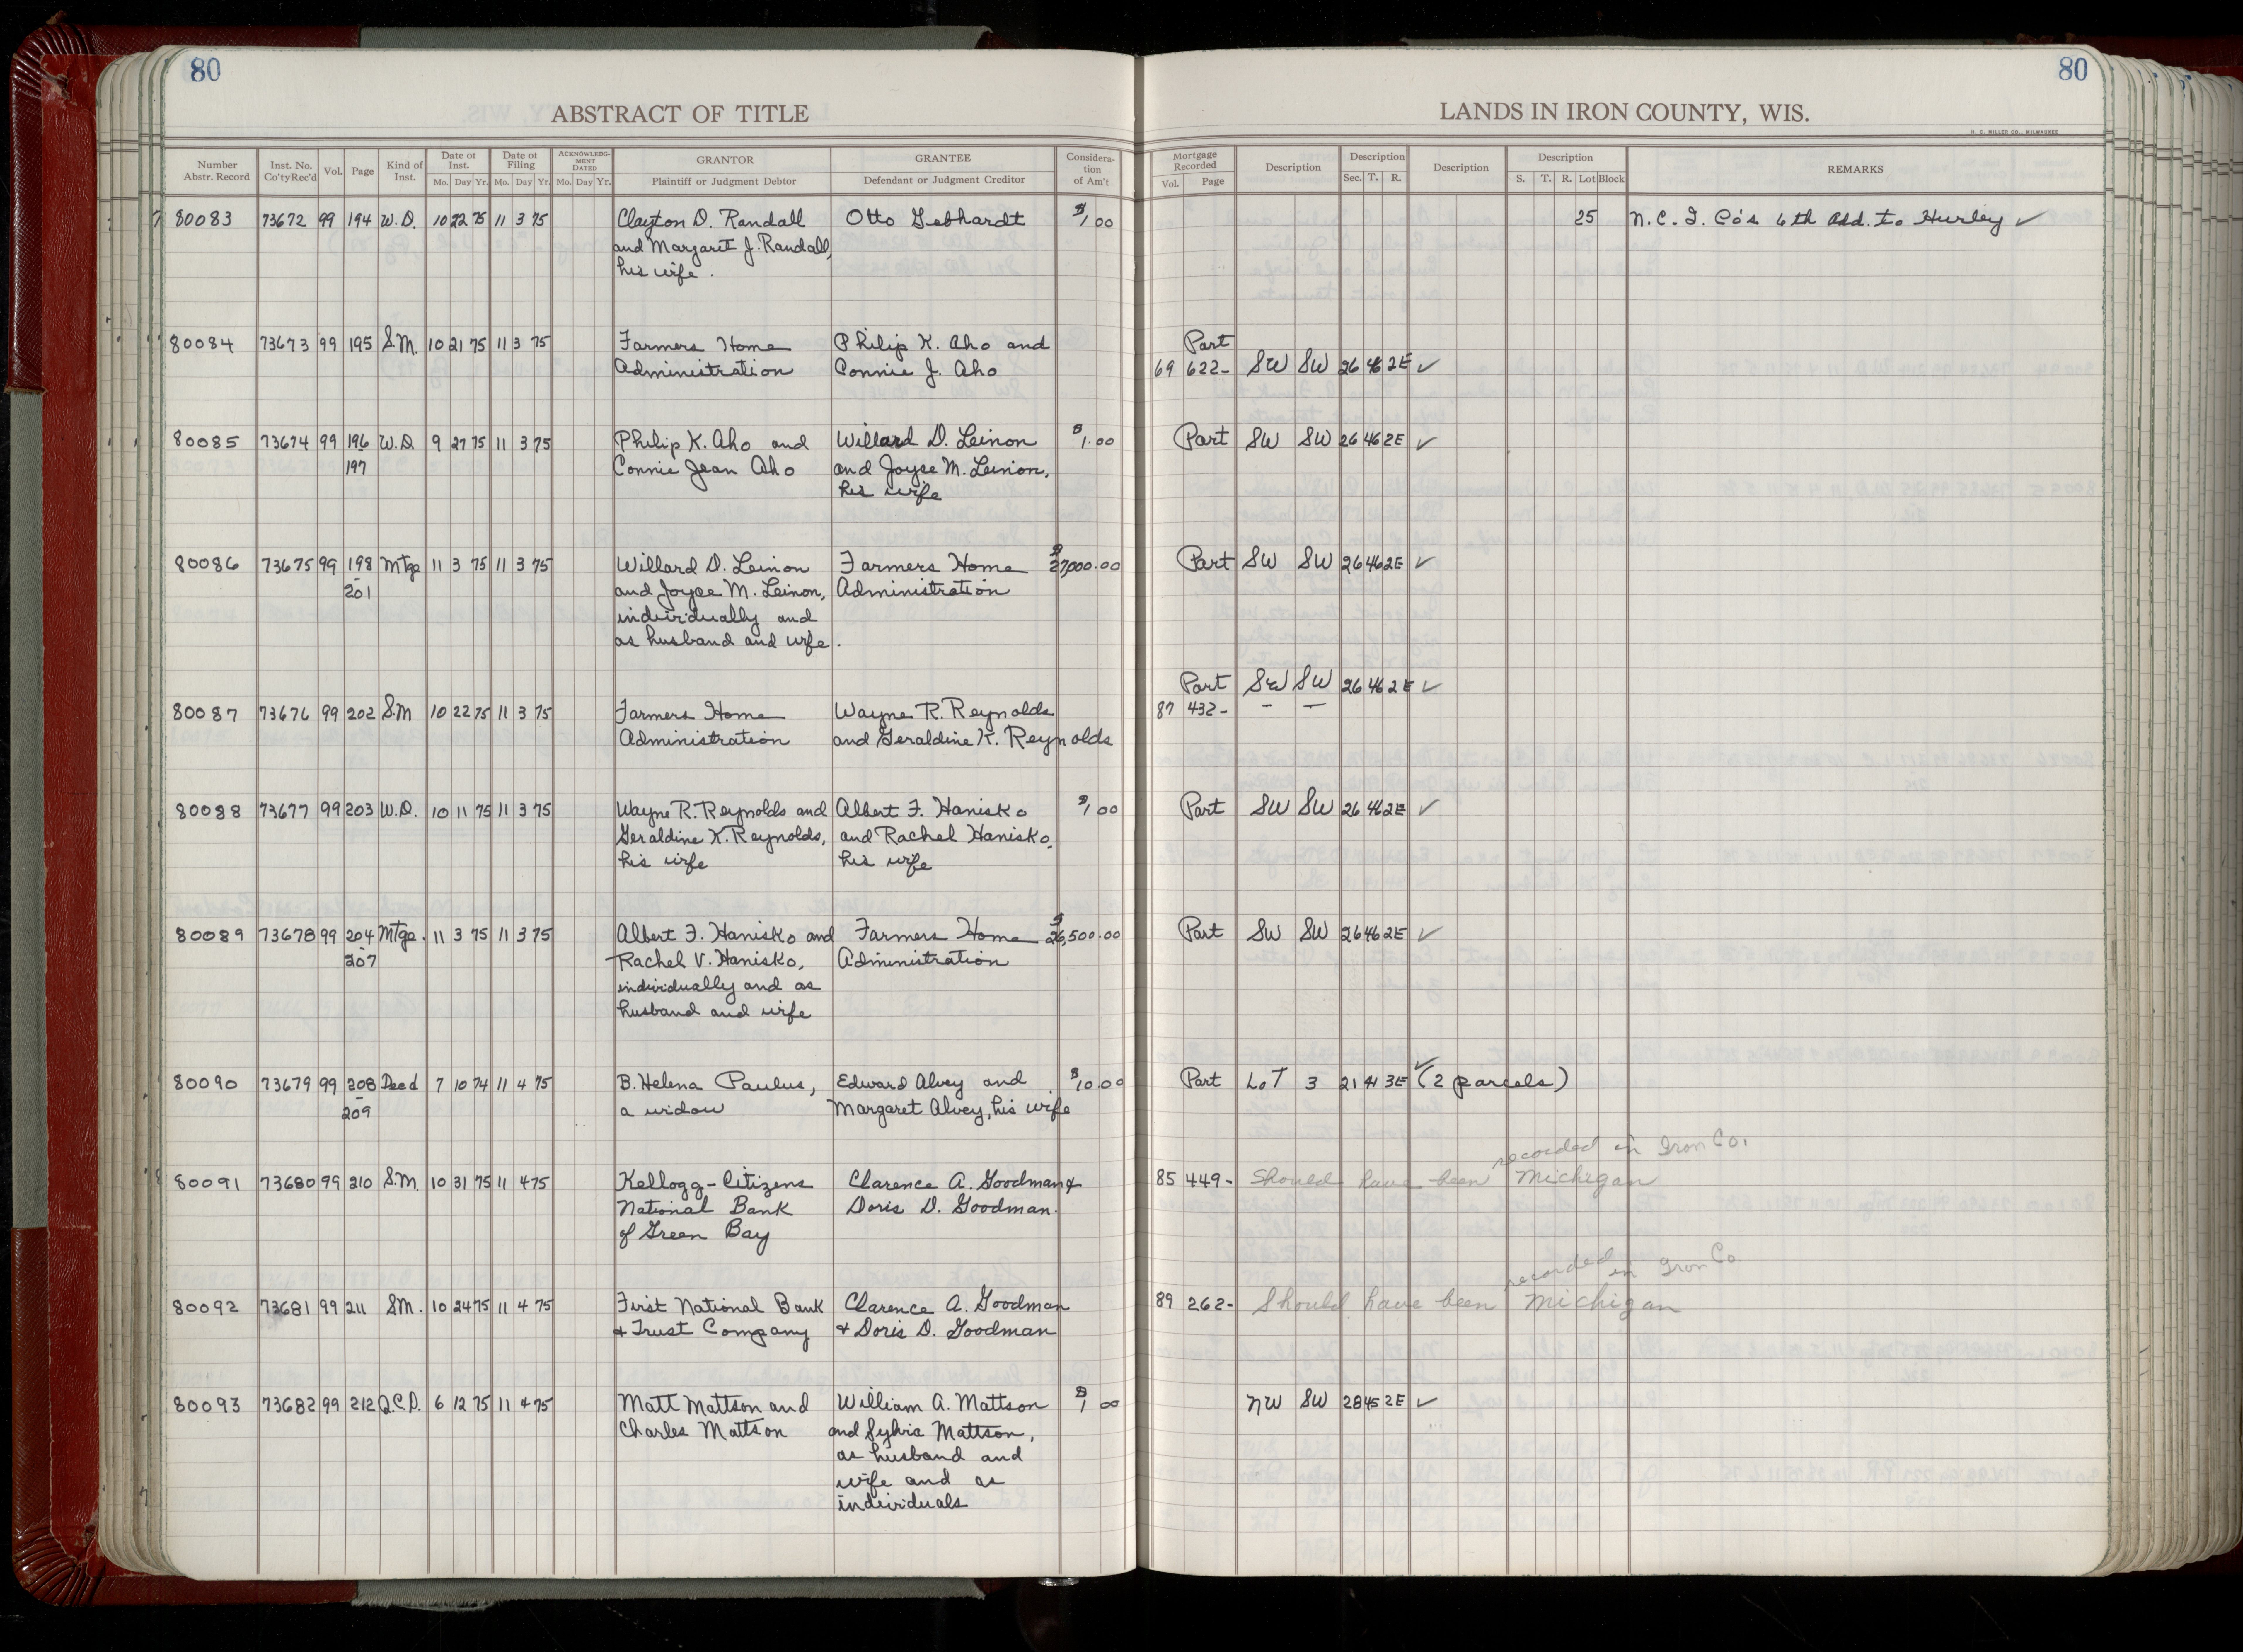 80
80
ABSTRACT OF TITLE
LANDS IN IRON COUNTY, WIS.
H. C. MILLER CO., MILWAUKEE
Number Abstr. Record | Inst. No. Co'ty Rec'd | Vol. | Page | Kind of Inst. | Date of Inst. Mo. Day Yr. | Date of Filing Mo. Day Yr. | ACKNOWLEDGMENT DATED Mo. Day Yr. | GRANTOR Plaintiff or Judgment Debtor | GRANTEE Defendant or Judgment Creditor | Consideration of Am't | Mortgage Recorded Vol. Page | Description | Description Sec. T. R. | Description | Description S. T. R. Lot Block | REMARKS
80083 73672 99 194 W.D. 10 22 75 11 3 75 Clayton D. Randall Otto Gebhardt $1 00 25 N.C.I. Co's 6th Add. to Hurley ✓
and Margaret J. Randall,
his wife.
Part
80084 73673 99 195 S.M. 10 21 75 11 3 75 Farmers Home Philip K. Aho and
Administration Connie J. Aho 69 622- SW SW 26 46 2E ✓
80085 73674 99 196 W.D. 9 27 75 11 3 75 Philip K. Aho and Willard D. Leinon $1.00 Part SW SW 26 46 2E ✓
197 Connie Jean Aho and Joyce M. Leinon,
his wife
80086 73675 99 198 Mtge 11 3 75 11 3 75 Willard D. Leinon Farmers Home $27,000.00 Part SW SW 26 46 2E ✓
-201 and Joyce M. Leinon, Administration
individually and
as husband and wife.
Part SW SW 26 46 2E ✓
80087 73676 99 202 S.M 10 22 75 11 3 75 Farmers Home Wayne R. Reynolds 87 432- - -
Administration and Geraldine K. Reynolds
80088 73677 99 203 W.D. 10 11 75 11 3 75 Wayne R. Reynolds and Albert F. Hanisko $1 00 Part SW SW 26 46 2E ✓
Geraldine K. Reynolds, and Rachel Hanisko,
his wife his wife
80089 73678 99 204 Mtge. 11 3 75 11 3 75 Albert F. Hanisko and Farmers Home $26,500.00 Part SW SW 26 46 2E ✓
-207 Rachel V. Hanisko, Administration
individually and as
husband and wife
80090 73679 99 208 Deed 7 10 74 11 4 75 B. Helena Paulus, Edward Alvey and $10.00 Part LOT 3 21 41 3E ✓ (2 parcels)
-209 a widow Margaret Alvey, his wife
recorded in Iron Co.
80091 73680 99 210 S.M. 10 31 75 11 4 75 Kellogg-Citizens Clarence A. Goodman & 85 449- Should have been Michigan
National Bank Doris D. Goodman.
of Green Bay
recorded in Iron Co
80092 73681 99 211 SM. 10 24 75 11 4 75 First National Bank Clarence A. Goodman 89 262- Should have been Michigan
& Trust Company & Doris D. Goodman
80093 73682 99 212 Q.C.D. 6 12 75 11 4 75 Matt Mattson and William A. Mattson $1 00 NW SW 28 45 2E ✓
Charles Mattson and Sylvia Mattson,
as husband and
wife and as
individuals